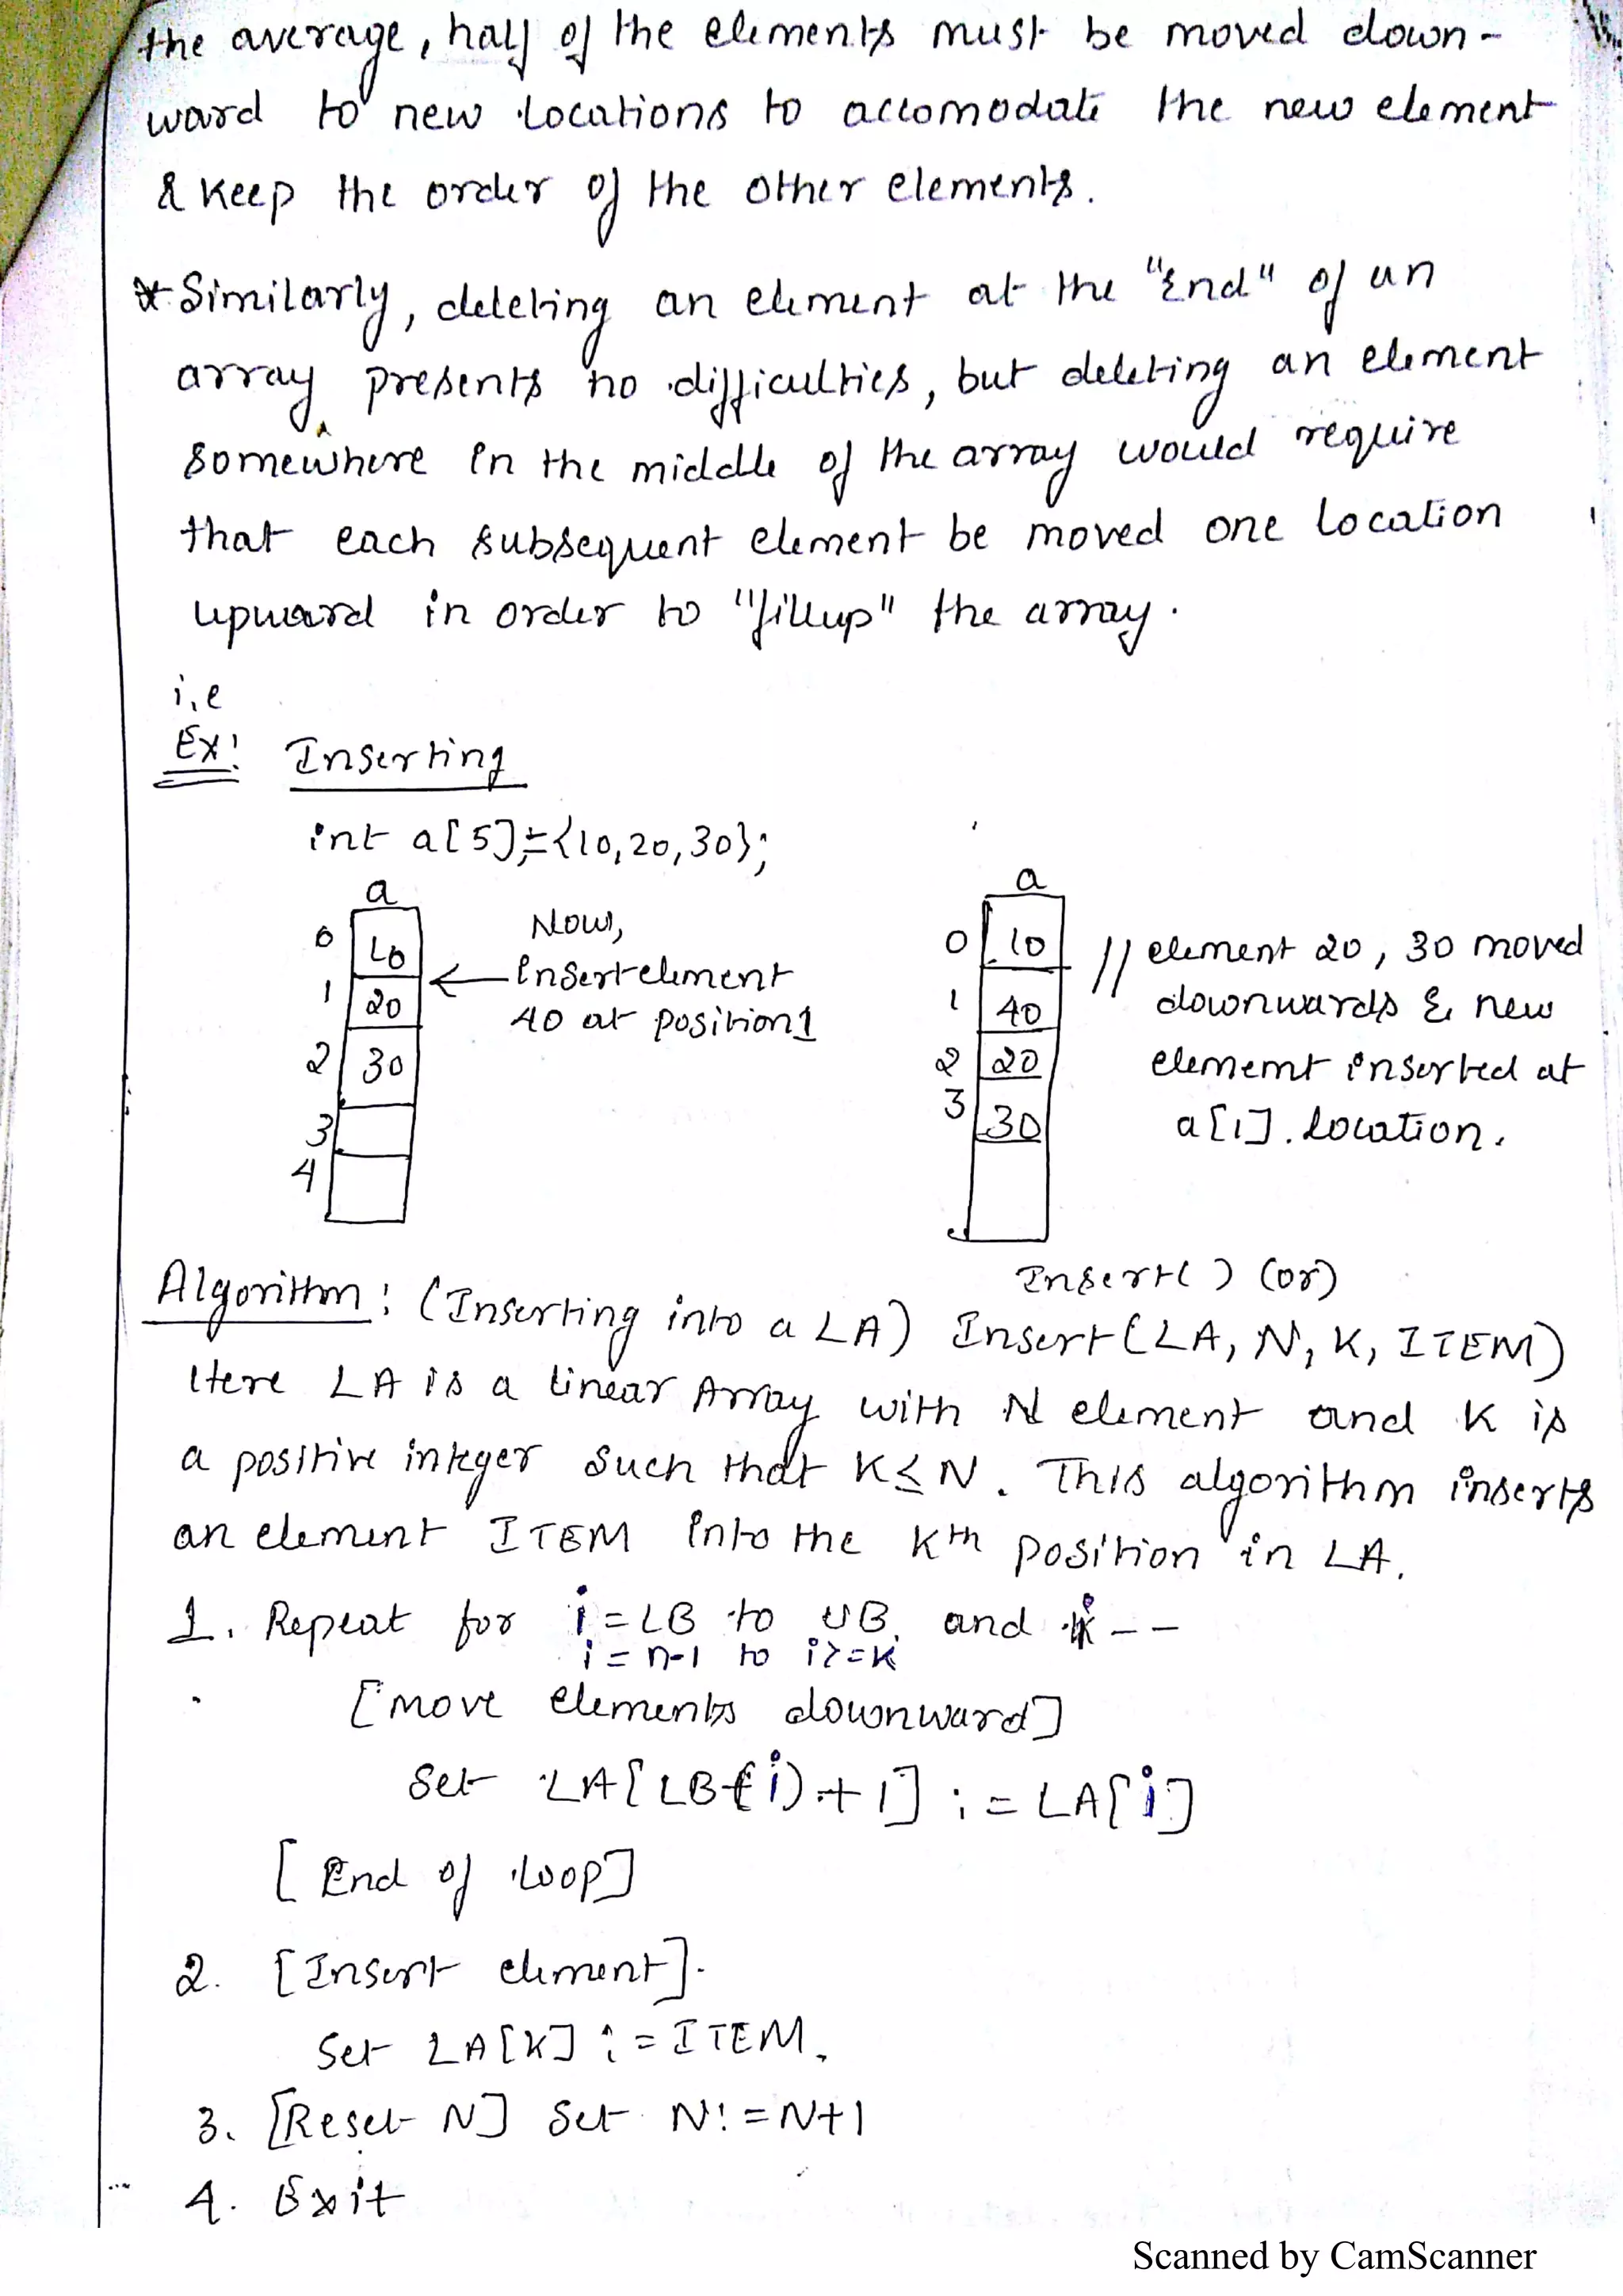 the average, half of the elements must be moved down-
ward to new locations to accomodate the new element
& keep the order of the other elements.
* Similarly, deleting an element at the "End" of an
array presents no difficulties, but deleting an element
somewhere in the middle of the array would require
that each subsequent element be moved one location
upward in order to "fillup" the array.
i,e
Ex: Inserting
int a[5]={10,20,30};
a
0 10
1 20
2 30
3
4
Now,
Insert element
40 at position 1
a
0 10
1 40
2 20
3 30
// element 20, 30 moved
downwards & new
elememt inserted at
a[1]. location.
Insert( ) (or)
Algorithm: (Inserting into a LA) Insert(LA, N, K, ITEM)
Here LA is a linear Array with N element and K is
a positive integer such that K≤N. This algorithm inserts
an element ITEM into the Kth position in LA.
1. Repeat for i=LB to UB. and i--
i=n-1 to i>=K
[move elements downward]
Set LA[LB+(i)+1] := LA[i]
[End of loop]
2. [Insert element].
Set LA[K] := ITEM.
3. [Reset N] Set N:=N+1
4. Exit
Scanned by CamScanner